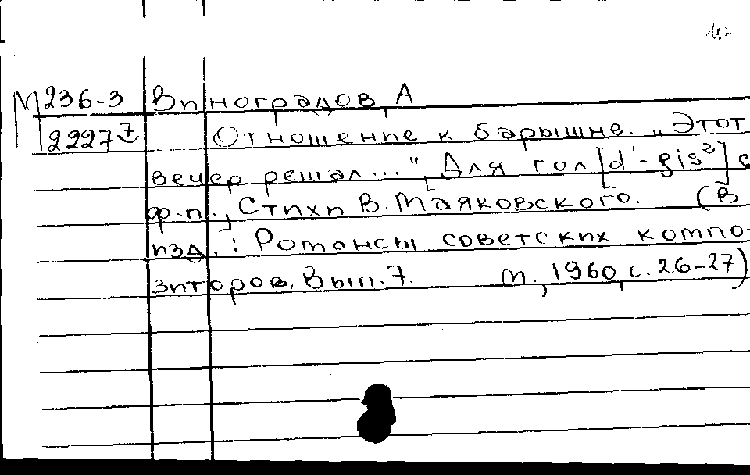 М 236-3 Виноградов, А
2227 Отношение к барышне. „Этот
вечер решал...", Для гол[d'-gis²] с
ф.-п., Стихи В. Маяковского. (В
изд.: Романсы советских компо-
зиторов. Вып. 7. М., 1960, с. 26-27)